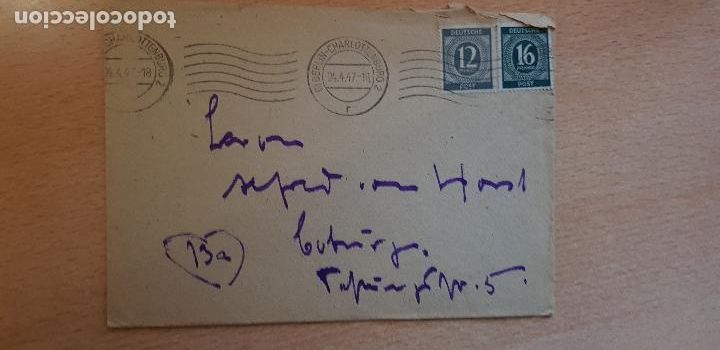 todocoleccion
todocoleccion.net
CHARLOTTENBURG 2
24.4.47.-18
BERLIN-CHARLOTTENBURG 2
24.4.47.-18
r
DEUTSCHE
12
POST
DEUTSCHE
16
PFENNIG
POST
Alfred von Horst
Coburg.
13a
5.